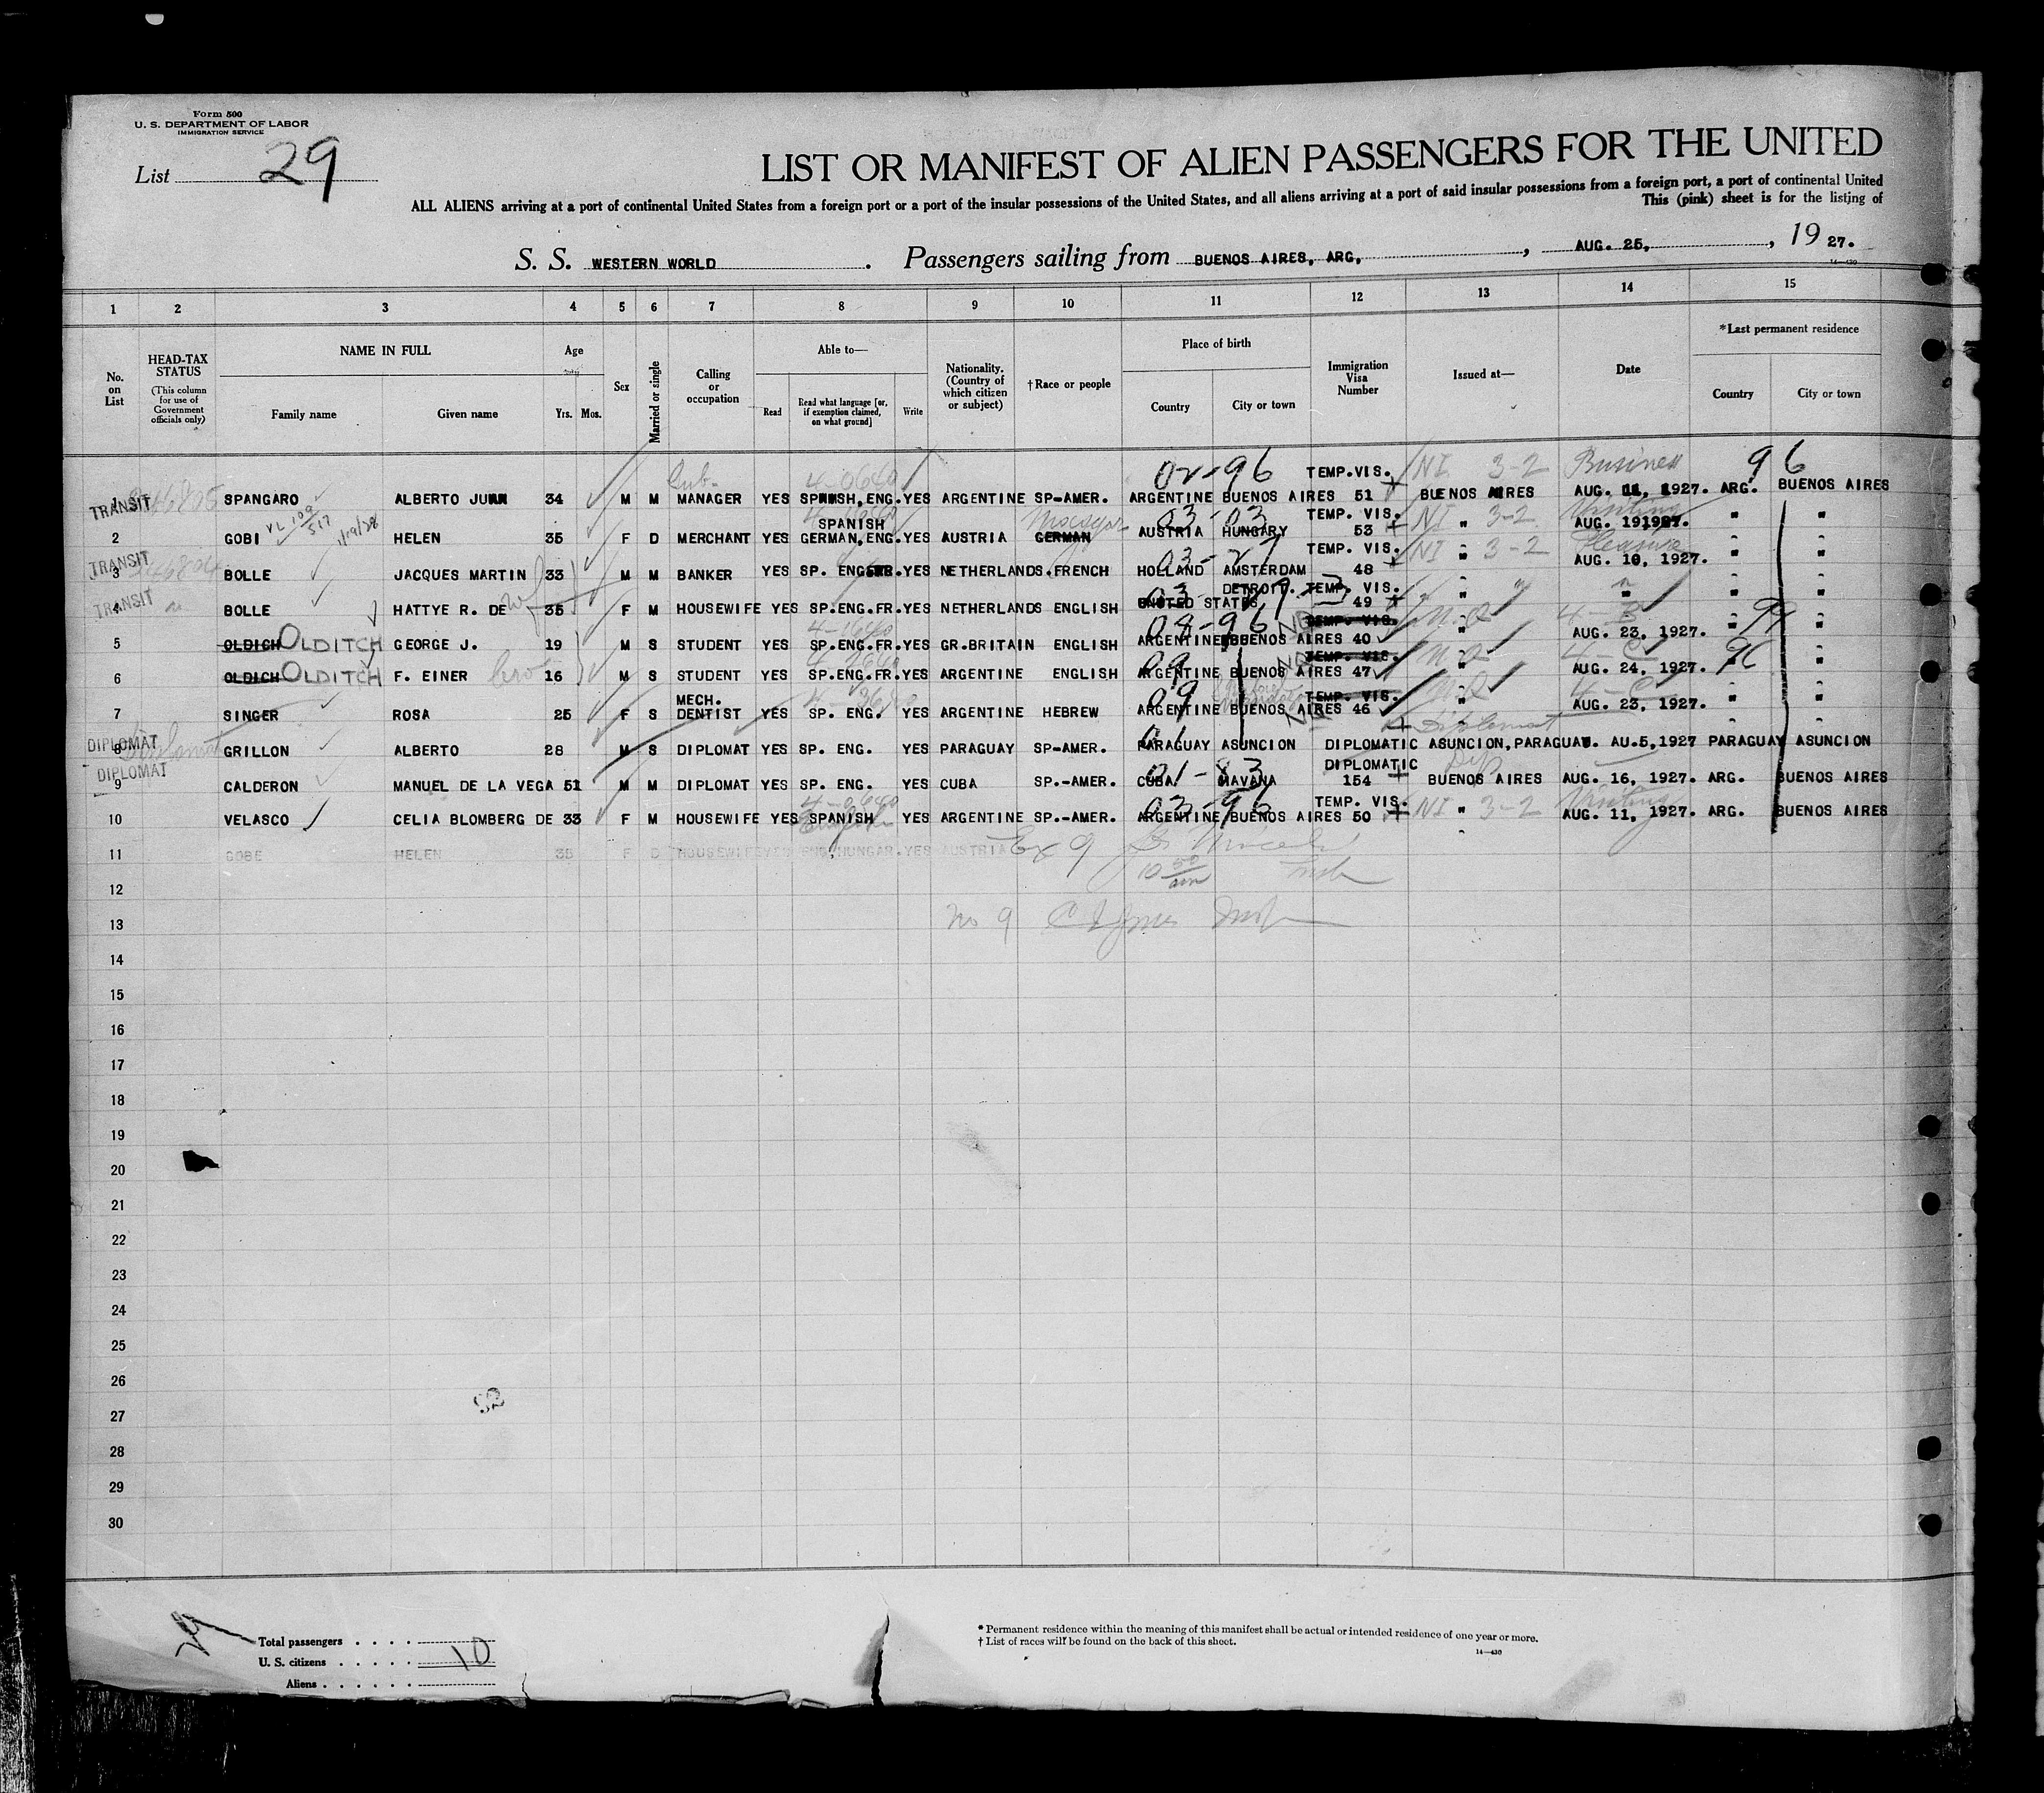 Form 500
U. S. DEPARTMENT OF LABOR
IMMIGRATION SERVICE
List 29
LIST OR MANIFEST OF ALIEN PASSENGERS FOR THE UNITED
ALL ALIENS arriving at a port of continental United States from a foreign port or a port of the insular possessions of the United States, and all aliens arriving at a port of said insular possessions from a foreign port, a port of continental United
This (pink) sheet is for the listing of
S. S. WESTERN WORLD. Passengers sailing from BUENOS AIRES, ARG, , AUG. 25, , 19 27.
14—430
1 2 3 4 5 6 7 8 9 10 11 12 13 14 15
No. on List
HEAD-TAX STATUS (This column for use of Government officials only)
NAME IN FULL
Family name Given name
Age
Yrs. Mos.
Sex
Married or single
Calling or occupation
Able to—
Read Read what language [or, if exemption claimed, on what ground] Write
Nationality. (Country of which citizen or subject)
†Race or people
Place of birth
Country City or town
Immigration Visa Number
Issued at—
Date
*Last permanent residence
Country City or town
Sub. 4-0640 02-96 TEMP.VIS. NI 3-2 Business 96
TRANSIT 1 SPANGARO ALBERTO JUAN 34 M M MANAGER YES SPANISH, ENG. YES ARGENTINE SP-AMER. ARGENTINE BUENOS AIRES 51 BUENOS AIRES AUG. 11, 1927. ARG. BUENOS AIRES
SPANISH 03-03 TEMP. VIS. NI 3-2 Visiting
2 GOBI HELEN 35 F D MERCHANT YES GERMAN, ENG. YES AUSTRIA GERMAN AUSTRIA HUNGARY 53 " AUG. 19 1927. " "
TRANSIT 03-27 TEMP. VIS. NI 3-2 Pleasure
3 BOLLE JACQUES MARTIN 33 M M BANKER YES SP. ENG. YES NETHERLANDS. FRENCH HOLLAND AMSTERDAM 48 " AUG. 10, 1927. " "
TRANSIT DETROIT. TEMP. VIS.
4 BOLLE HATTYE R. DE wf 35 F M HOUSEWIFE YES SP.ENG.FR. YES NETHERLANDS ENGLISH UNITED STATES 49 " " " "
08-96 TEMP. VIS. 4-B 99
5 OLDICH OLDITCH GEORGE J. 19 M S STUDENT YES SP.ENG.FR. YES GR.BRITAIN ENGLISH ARGENTINE BUENOS AIRES 40 " AUG. 23, 1927. " "
09 TEMP. VIS. 4-C 96
6 OLDICH OLDITCH F. EINER bro 16 M S STUDENT YES SP.ENG.FR. YES ARGENTINE ENGLISH ARGENTINE BUENOS AIRES 47 " AUG. 24, 1927. " "
MECH. 09 TEMP. VIS. 4-C
7 SINGER ROSA 25 F S DENTIST YES SP. ENG. YES ARGENTINE HEBREW ARGENTINE BUENOS AIRES 46 " AUG. 23, 1927. " "
DIPLOMAT 01 Diplomat
8 GRILLON ALBERTO 28 M S DIPLOMAT YES SP. ENG. YES PARAGUAY SP-AMER. PARAGUAY ASUNCION DIPLOMATIC ASUNCION, PARAGUAY. AU.5,1927 PARAGUAY ASUNCION
DIPLOMAT 01-83 DIPLOMATIC Dip
9 CALDERON MANUEL DE LA VEGA 51 M M DIPLOMAT YES SP. ENG. YES CUBA SP.-AMER. CUBA HAVANA 154 BUENOS AIRES AUG. 16, 1927. ARG. BUENOS AIRES
4-0640 03-96 TEMP. VIS. NI 3-2 Visiting
10 VELASCO CELIA BLOMBERG DE 33 F M HOUSEWIFE YES SPANISH English YES ARGENTINE SP.-AMER. ARGENTINE BUENOS AIRES 50 " AUG. 11, 1927. ARG. BUENOS AIRES
11 GOBE HELEN 38 F D HOUSEWIFE YES ENG, HUNGAR. YES AUSTRIA Ex 9
12
13 No 9
14
15
16
17
18
19
20
21
22
23
24
25
26
27
28
29
30
Total passengers . . . .
U. S. citizens . . . . . 10
Aliens . . . . . .
* Permanent residence within the meaning of this manifest shall be actual or intended residence of one year or more.
† List of races will be found on the back of this sheet.
14—430